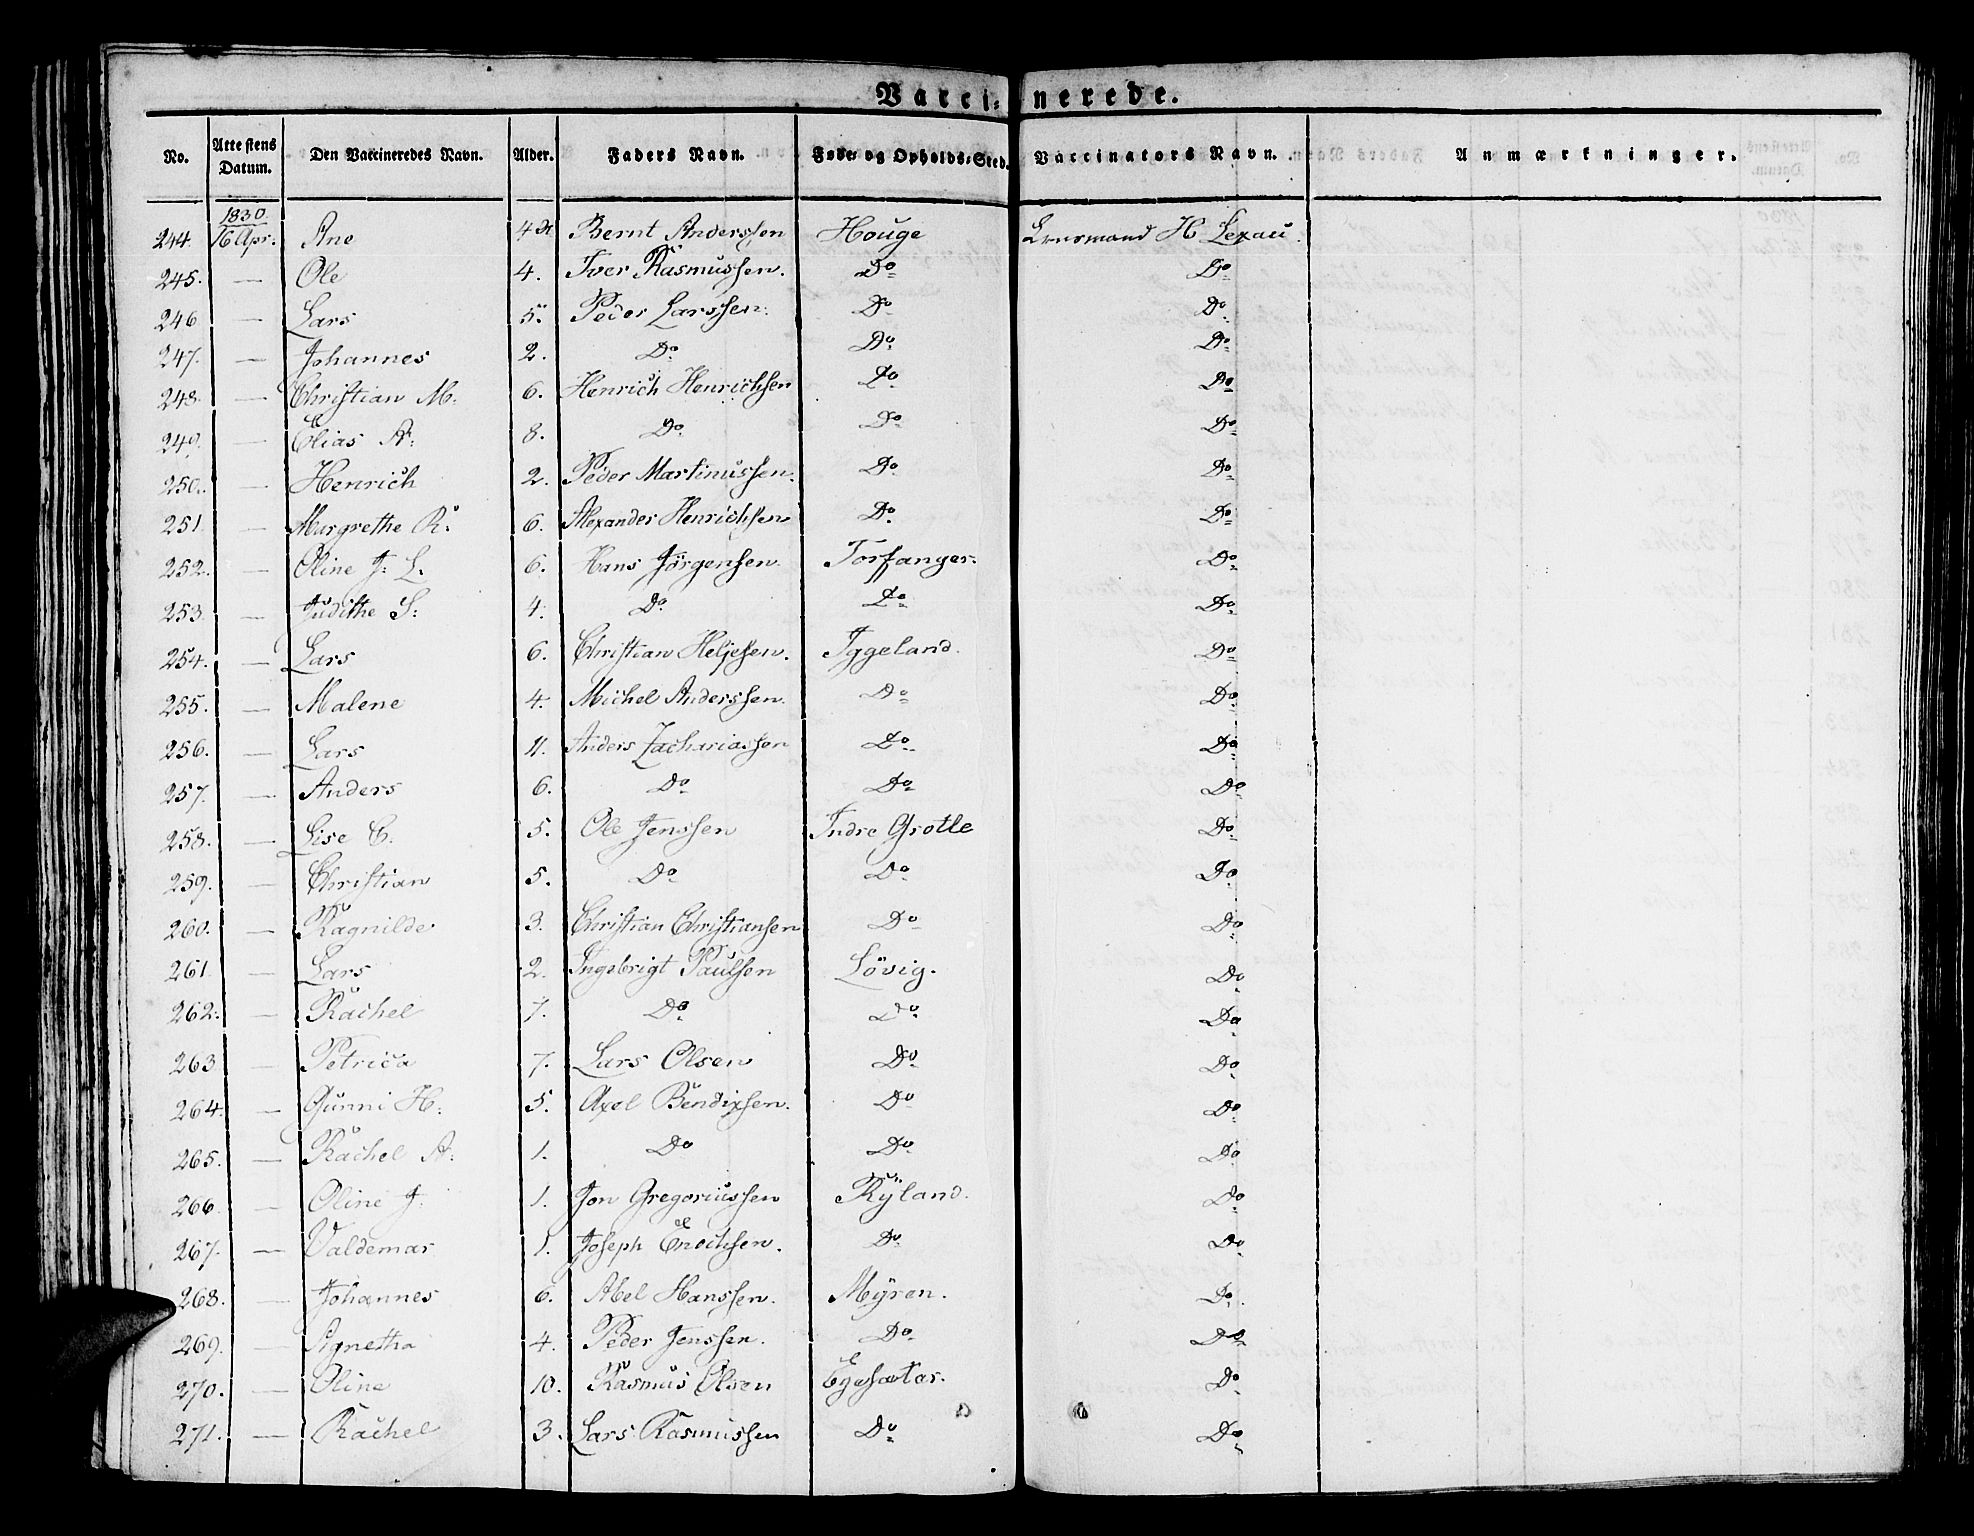 Vacci- nerede.
No. Attestens Datum. Den Vaccineredes Navn. Alder. Faders Navn. Føde- og Opholds-Sted. Vaccinators Navn. Anmærkninger.
1830
244. 16 Apr: Ane 4 Bernt Anderssen Houge H
245. — Ole 4. Iver Rasmussen. Do Do
246 — Lars 5. Peder Larssen. Do Do
247. — Johannes 2. Do Do Do
248. — Christian M: 6. Henrich Henrichsen Do Do
249. — Elias A: 8. Do Do Do
250. — Henrich 2. Peder Martinussen. Do Do
251 — Margrethe R: 6. Alexander Henrichsen Do Do
252. — Oline J: L. 6. Hans Jörgensen Torfanger. Do
253 — Judithe S: 4. Do Do Do
254. — Lars 6. Christian Heljesen. Iggeland. Do
255. — Malene 4. Michel Anderssen. Do Do
256. — Lars 11. Anders Zachariassen Do Do
257. — Anders 6. Do Do Do
258. — Lise C. 5. Ole Jenssen Indre Grotle Do
259. — Christian 5. Do Do Do
260. — Ragnilde 3. Christian Christiansen Do Do
261 — Lars 2. Ingebrigt Paulsen Lövig. Do
262. — Rachel 7. Do Do Do
263 — Petrica 7. Lars Olsen Do Do
264. — Gunni H: 5. Axel Bendixsen. Do Do
265. — Rachel A: 1. Do Do Do
266 — Oline J. 1. Jon Gregoriussen Rÿland. Do
267. — Valdemar 1. Joseph Enochsen. Do Do
268. — Johannes 6. Abel Hanssen. Mÿren. Do
269. — Agnetha 4. Peder Jenssen. Do Do
270. — Oline 10. Rasmus Olsen Do
271. — Rachel 3. Lars Rasmussen Do Do